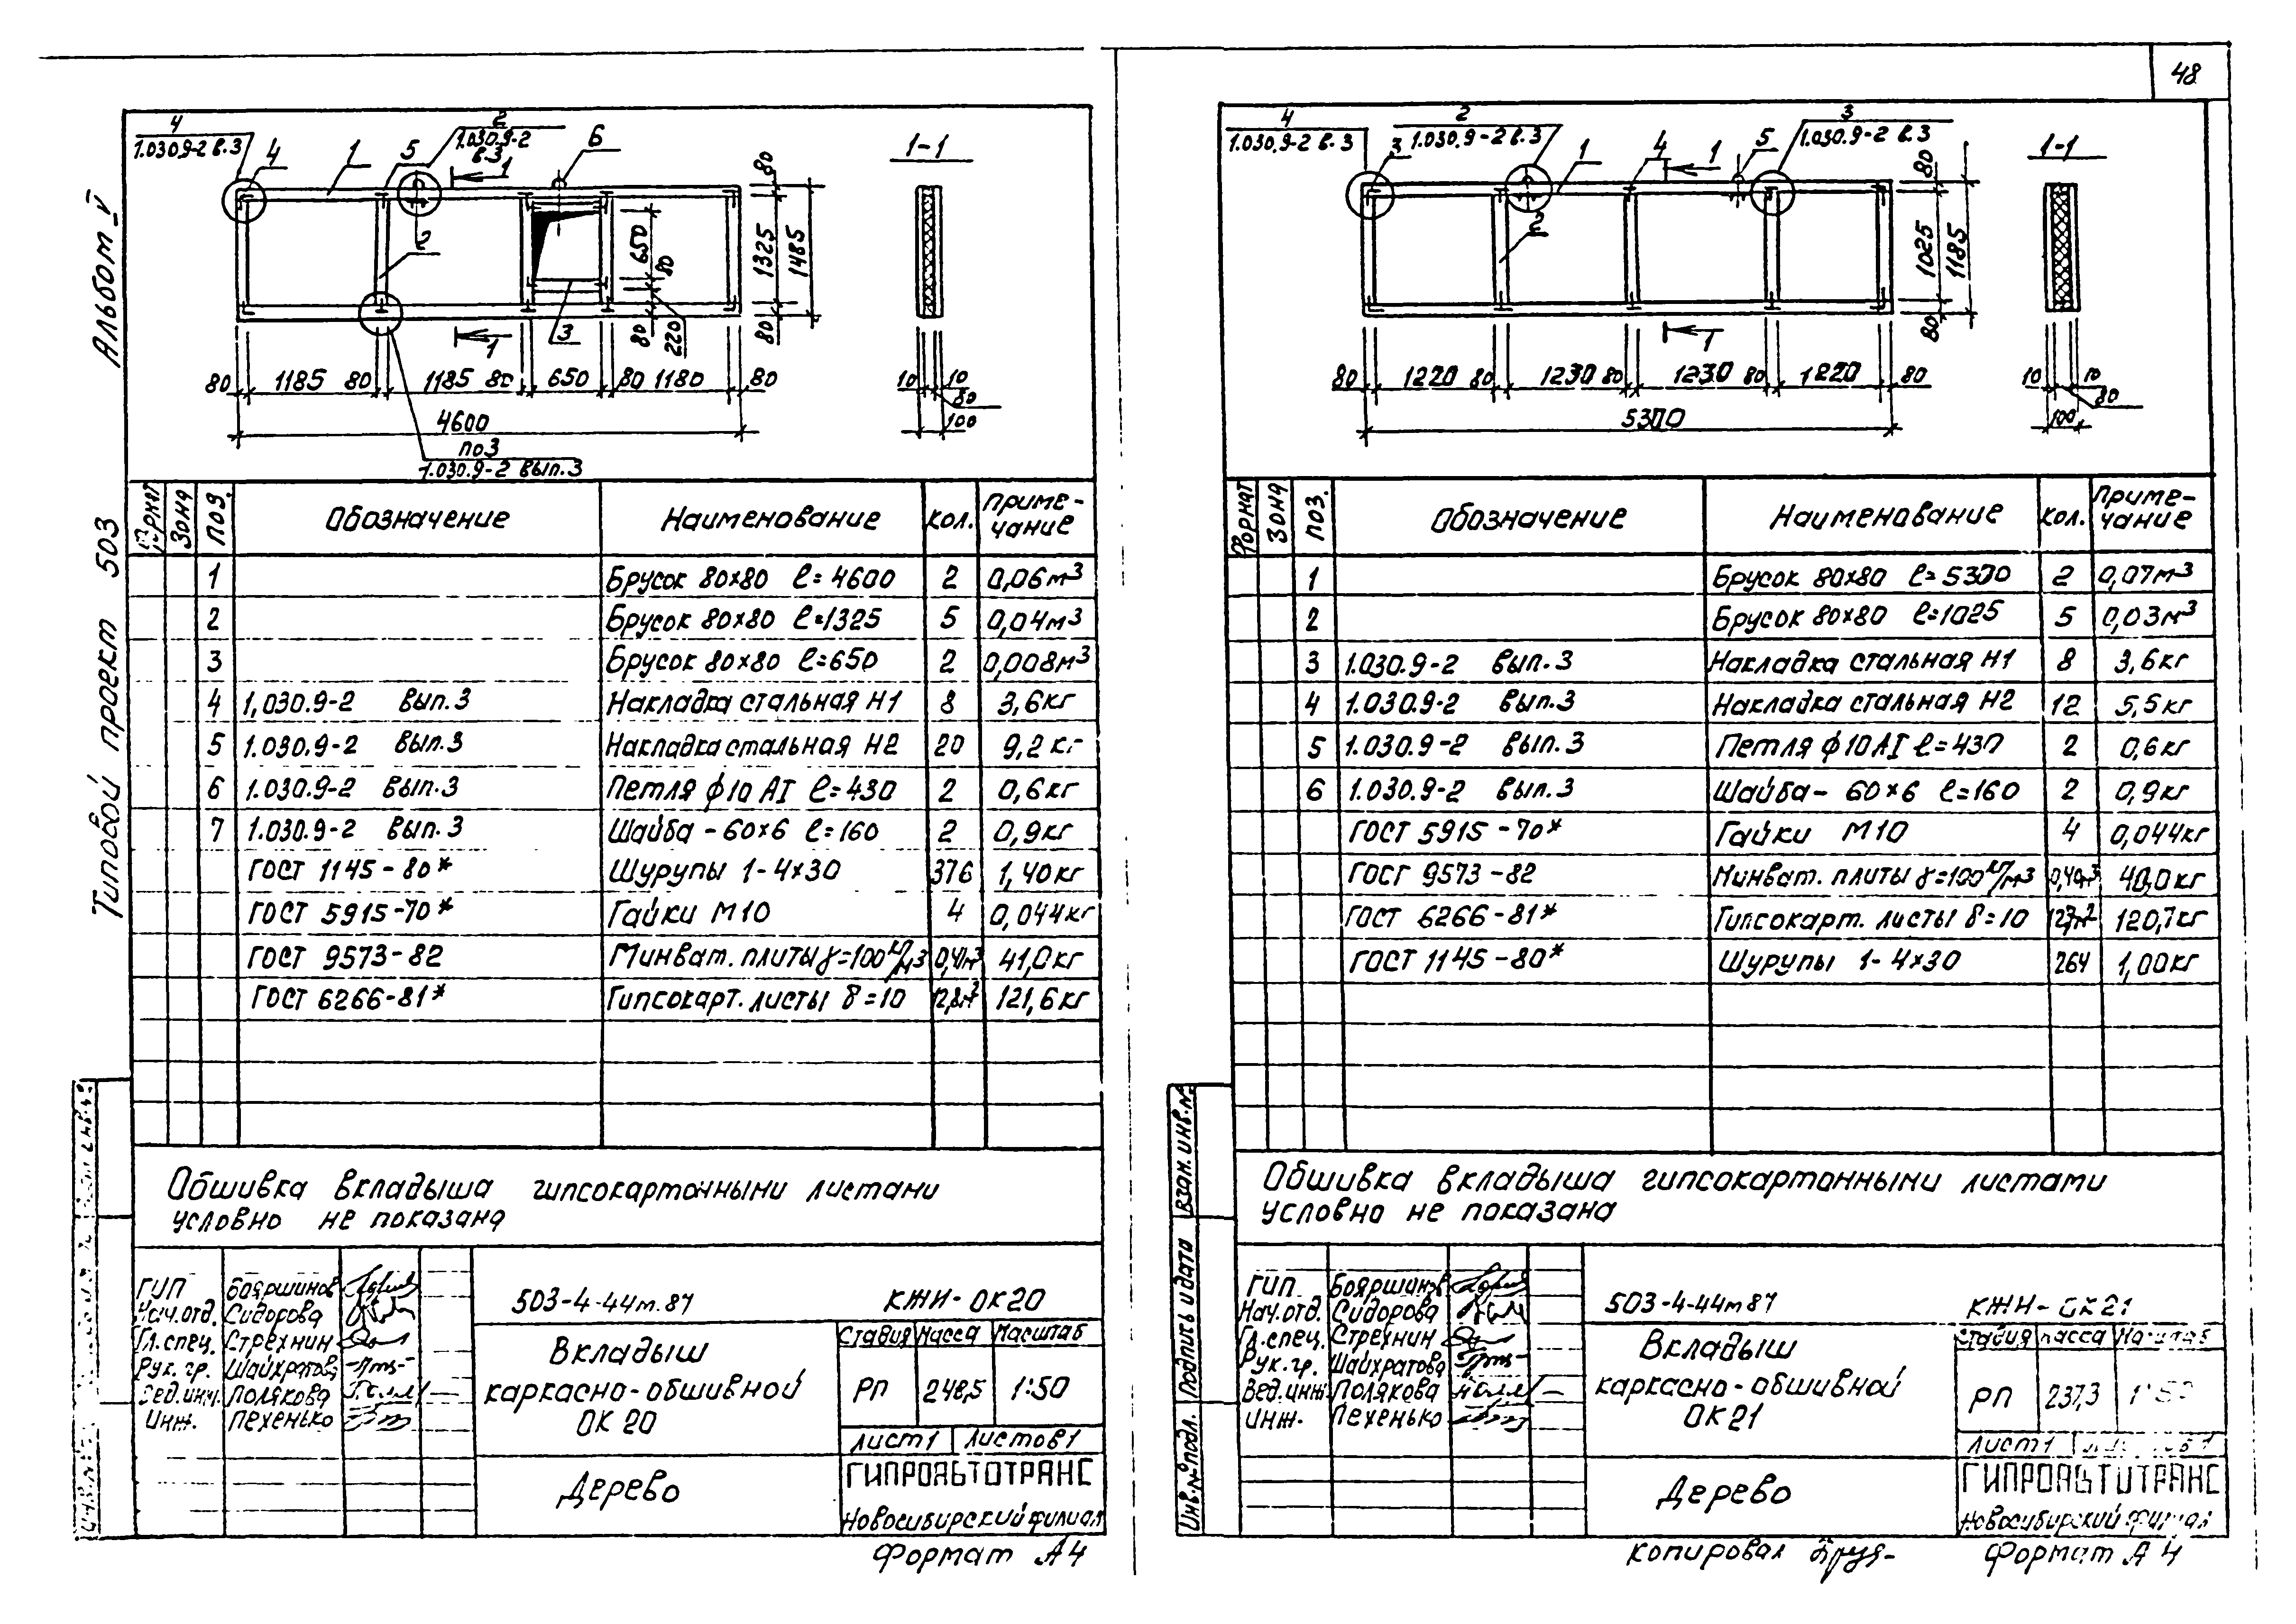 48
Альбом V
Типовой проект 503
4
1.030.9-2 в.3
2
1.030.9-2
в.3
4
1
5
1
6
1-1
2
3
1
650
80
80
220
80
1325
80
1485
80 1185 80 1185 80 650 80 1180 80
4600
по3
1.030.9-2 вып.3
10 10
80
100
Формат Зона Поз. Обозначение Наименование Кол. Приме-
чание
1 Брусок 80х80 ℓ=4600 2 0,06м³
2 Брусок 80х80 ℓ=1325 5 0,04м³
3 Брусок 80х80 ℓ=650 2 0,008м³
4 1,030.9-2 вып.3 Накладка стальная Н1 8 3,6кг
5 1.030.9-2 вып.3 Накладка стальная Н2 20 9,2кг
6 1.030.9-2 вып.3 Петля ф10 АI ℓ=430 2 0,6кг
7 1.030.9-2 вып.3 Шайба -60х6 ℓ=160 2 0,9кг
ГОСТ 1145-80* Шурупы 1-4х30 376 1,40кг
ГОСТ 5915-70* Гайки М10 4 0,044кг
ГОСТ 9573-82 Минват. плиты γ=100кг/м3 0,41м³ 41,0кг
ГОСТ 6266-81* Гипсокарт. листы δ=10 12,8м² 121,6кг
Обшивка вкладыша гипсокартонными листами
условно не показана
ГИП Бояршинов
Нач.отд. Сидорова
Гл.спец. Стрехнин
Рук. гр. Шайхратова
Вед.инж. Полякова
Инж. Пехенько
503-4-44м.87 КЖИ-ОК20
Вкладыш
каркасно-обшивной
ОК 20
Стадия Масса Масштаб
РП 248,5 1:50
Лист1 Листов1
Дерево
ГИПРОАВТОТРАНС
Новосибирский филиал
Формат А4
4
1.030.9-2 в.3
2
1.030.9-2 в.3
3
1.030.9-2 в.3
3
1
4
1
5
1-1
2
1
80
1025
80
1185
80 1220 80 1230 80 1230 80 1220 80
5300
10 10
80
100
Формат Зона Поз. Обозначение Наименование Кол. Приме-
чание
1 Брусок 80х80 ℓ=5300 2 0,07м³
2 Брусок 80х80 ℓ=1025 5 0,03м³
3 1.030.9-2 вып.3 Накладка стальная Н1 8 3,6кг
4 1.030.9-2 вып.3 Накладка стальная Н2 12 5,5кг
5 1.030.9-2 вып.3 Петля ф10АI ℓ=430 2 0,6кг
6 1.030.9-2 вып.3 Шайба- 60х6 ℓ=160 2 0,9кг
ГОСТ 5915-70* Гайки М10 4 0,044кг
ГОСТ 9573-82 Минват. плиты γ=100кг/м3 0,40м³ 40,0кг
ГОСТ 6266-81* Гипсокарт. листы δ=10 12,7м² 120,7кг
ГОСТ 1145-80* Шурупы 1-4х30 264 1,00кг
Обшивка вкладыша гипсокартонными листами
условно не показана
Инв.№подл. Подпись и дата Взам.инв.№
ГИП Бояршинов
Нач.отд. Сидорова
Гл.спец. Стрехнин
Рук.гр. Шайхратова
Вед.инж. Полякова
Инж. Пехенько
503-4-44м87 КЖИ-ОК21
Вкладыш
каркасно-обшивной
ОК21
Стадия Масса Масштаб
РП 237,3 1:50
Лист1 Листов1
Дерево
ГИПРОАВТОТРАНС
Новосибирский филиал
Копировал Формат А4